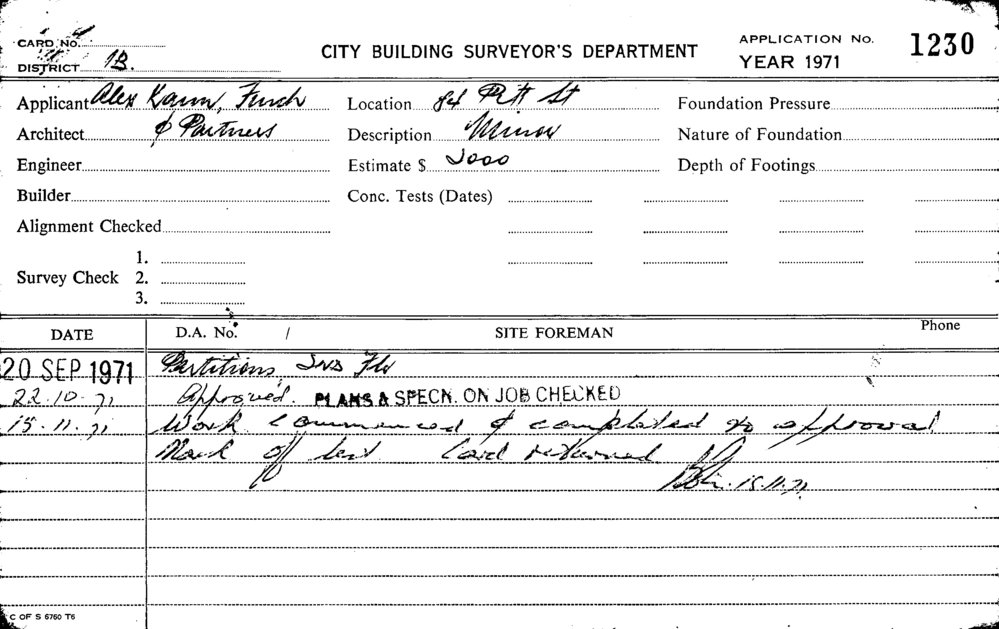 CARD No.
DISTRICT 1B.
CITY BUILDING SURVEYOR'S DEPARTMENT
APPLICATION No. 1230
YEAR 1971
Applicant Alex Kann, Finch
Location 84 Pitt St
Foundation Pressure
Architect & Partners
Description Minor
Nature of Foundation
Engineer
Estimate $ 2000
Depth of Footings
Builder
Conc. Tests (Dates)
Alignment Checked
Survey Check
1.
2.
3.
DATE
D.A. No. /
SITE FOREMAN
Phone
20 SEP 1971 Partitions, Flr
22.10.71 Approved. PLANS & SPECN. ON JOB CHECKED
15.11.71 Work commenced & completed to approval
Mark off Card returned
15.11.71
C OF S 6760 T6